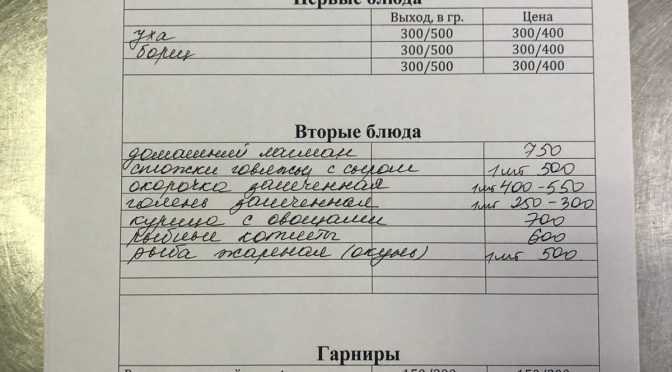 Первые блюда
Выход, в гр. Цена
уха 300/500 300/400
борщ 300/500 300/400
300/500 300/400
Вторые блюда
домашний лагман 750
стожки говяжьи с сыром 1шт 500
окорочка запеченная 1шт 400-550
голень запеченная 1шт 250-300
курица с овощами 700
рыбные котлеты 600
рыба жареная (окунь) 1шт 500
Гарниры
150/200 150/200